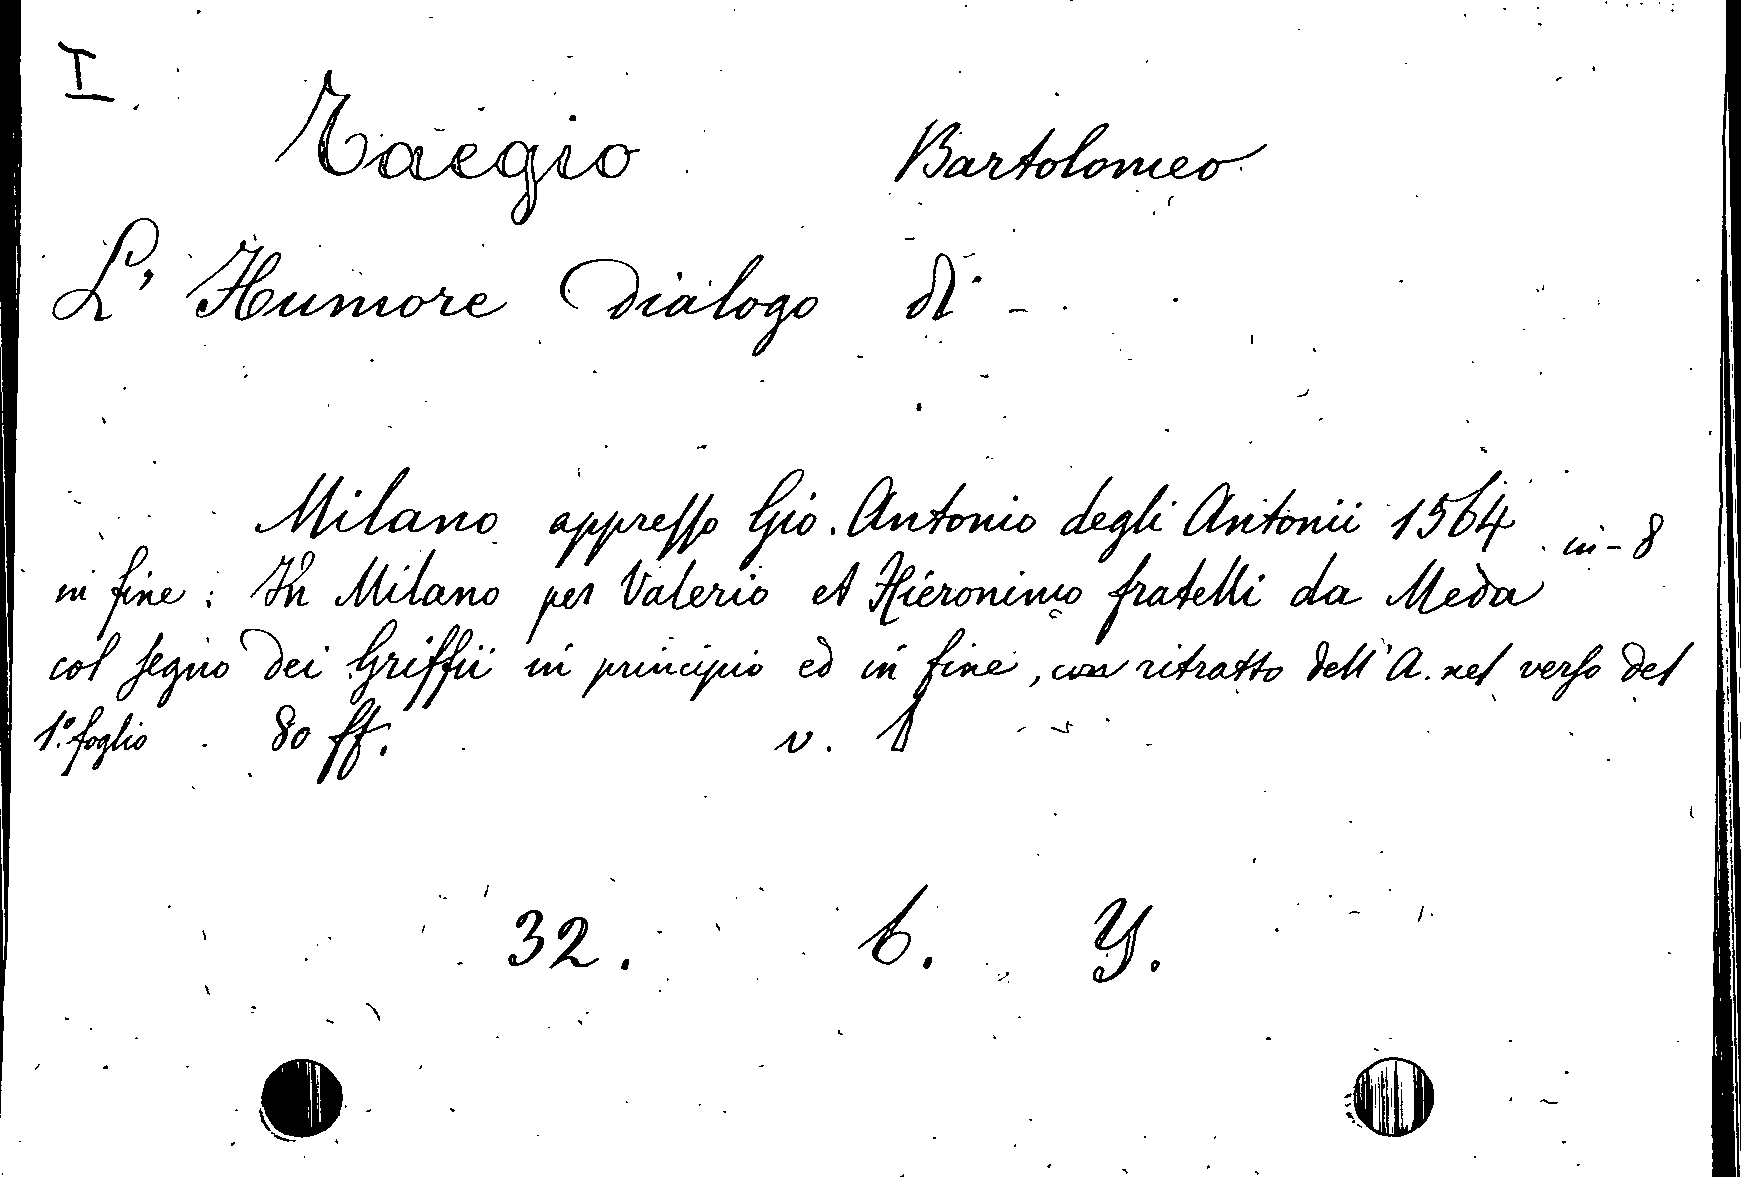 I
Taegio Bartolomeo
L' Humore Dialogo di -
Milano appresso Gio. Antonio degli Antonii 1564 in-8
in fine: In Milano per Valerio et Hieronimo fratelli da Meda
col segno dei Griffii in principio ed in fine, con ritratto dell'A. nel verso del
1.º foglio 80 ff. v.
32. 6. Y.